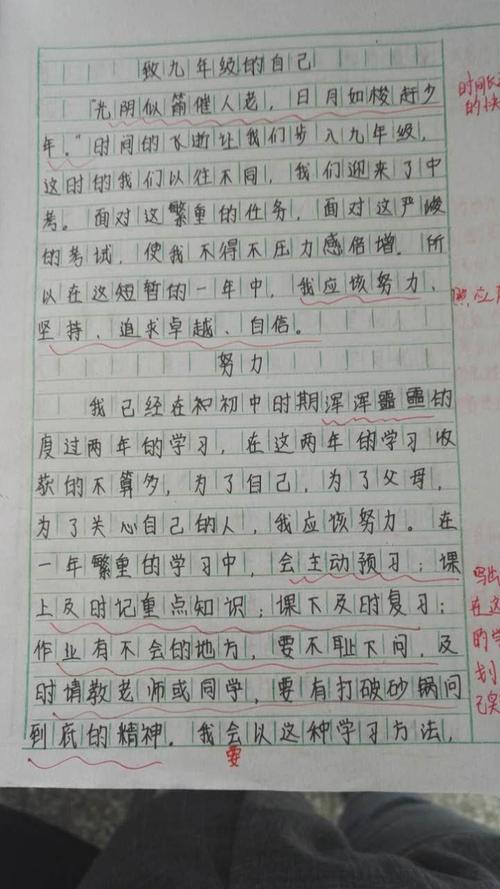 致九年级的自己
"光阴似箭催人老，日月如梭赶少
年。"时间的飞逝让我们步入九年级，
这时的我们以往不同，我们迎来了中
考。面对这繁重的任务，面对这严峻
的考试，使我不得不压力感倍增。所
以在这短暂的一年中，我应该努力、
坚持、追求卓越、自信。
努力
我已经在初中时期浑浑噩噩的
度过两年的学习，在这两年的学习收
获的不算多，为了自己，为了父母，
为了关心自己的人，我应该努力。在
一年繁重的学习中，会主动预习；课
上及时记重点知识；课下及时复习；
作业有不会的地方，要不耻下问，及
时请教老师或同学，要有打破砂锅问
到底的精神。我会以这种学习方法，
要
时间
的快
照应
写出
在这
的学
划